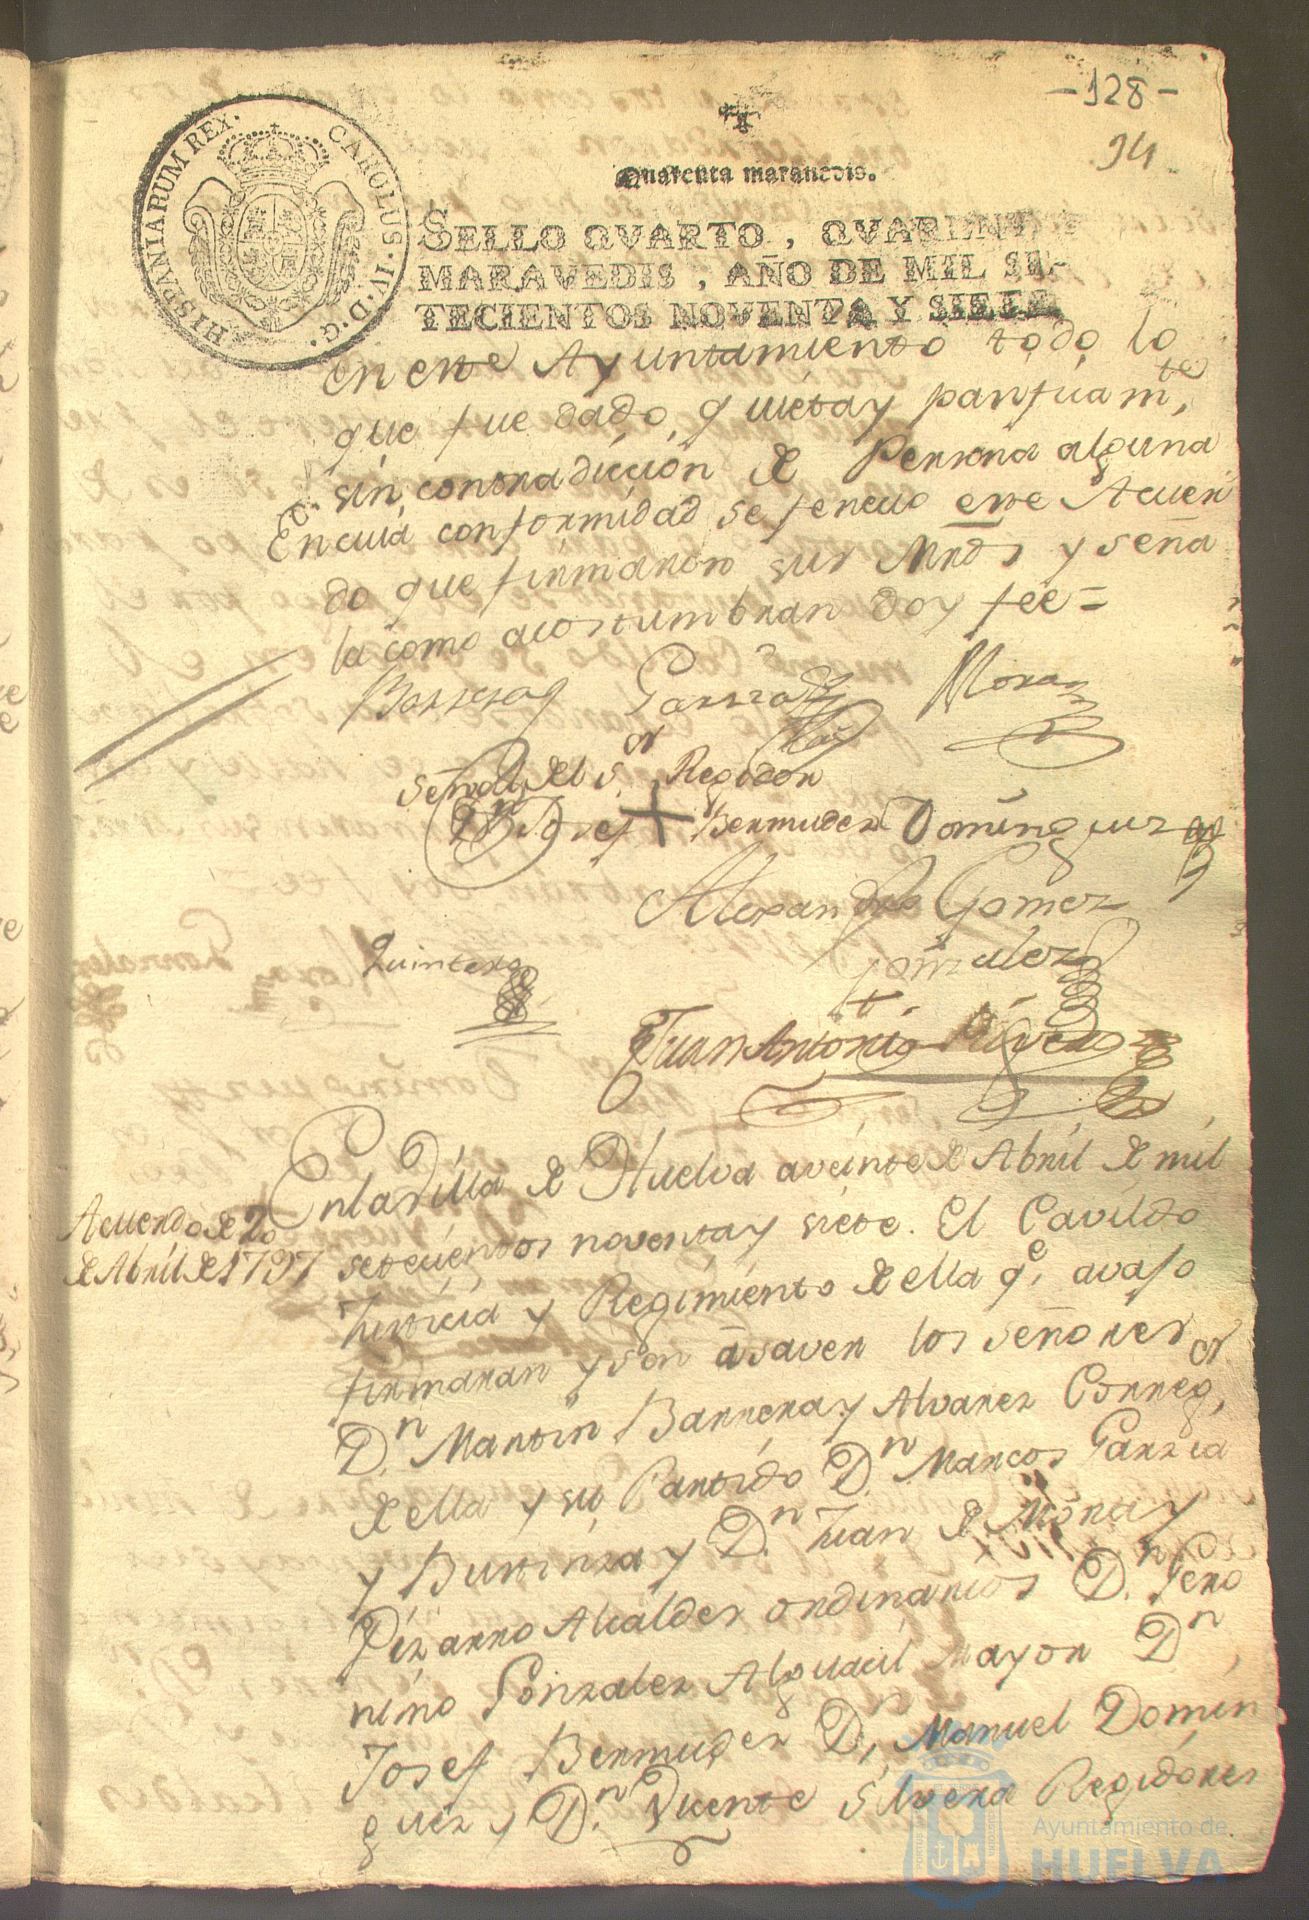 -128-
94
HISPANIARUM REX.
CAROLUS·IV·D·G·
Quarenta maravedis.
SELLO QVARTO, QVARENTA
MARAVEDIS, AÑO DE MIL SE-
TECIENTOS NOVENTA Y SIETE
en este Ayuntamiento todo lo
que fue dado, quieta y pacificam.te
sin contradiccion de Persona alguna
En cuia conformidad se fenecio este Acuer
do que firmaron sus Mrds y seña
la como acostumbran doy fee =
Barrera Garzia Mora
Señal del S.or Regidor
Dn Josef + Bermudez Dominguez
Alexandro Gomez
Quintero Gonzalez
Juan Antonio Rivera
Acuerdo de 20
de Abril de 1797
En la Villa de Huelva a veinte de Abril de mil
setecientos noventa y siete. El Cavildo
Justicia y Regimiento de ella q.e avajo
firmaran y son a saver los señores
D.n Martin Barrera y Alvarez Correg.or
de ella y su Partido D.n Marcos Garzia
y Bustinza y D.n Juan de Mora y
Pizarro Alcaldes ordinarios D.n Gero
nimo Gonzalez Alguacil mayor Dn
Josef Bermudez D.n Manuel Domin
guez y D.n Vicente Silvera Regidores
Ayuntamiento de
HUELVA